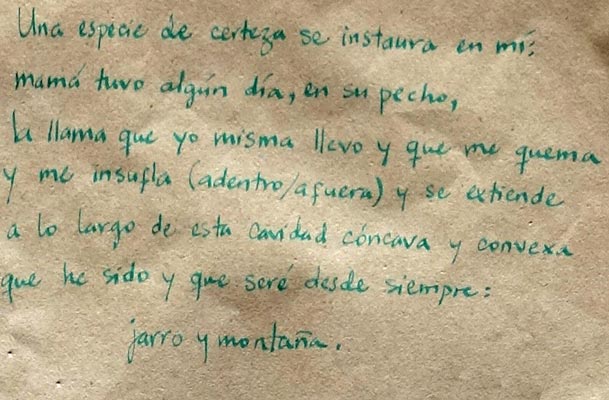 Una especie de certeza se instaura en mí:
mamá tuvo algún día, en su pecho,
la llama que yo misma llevo y que me quema
y me insufla (adentro/afuera) y se extiende
a lo largo de esta cavidad cóncava y convexa
que he sido y que seré desde siempre:
jarro y montaña.